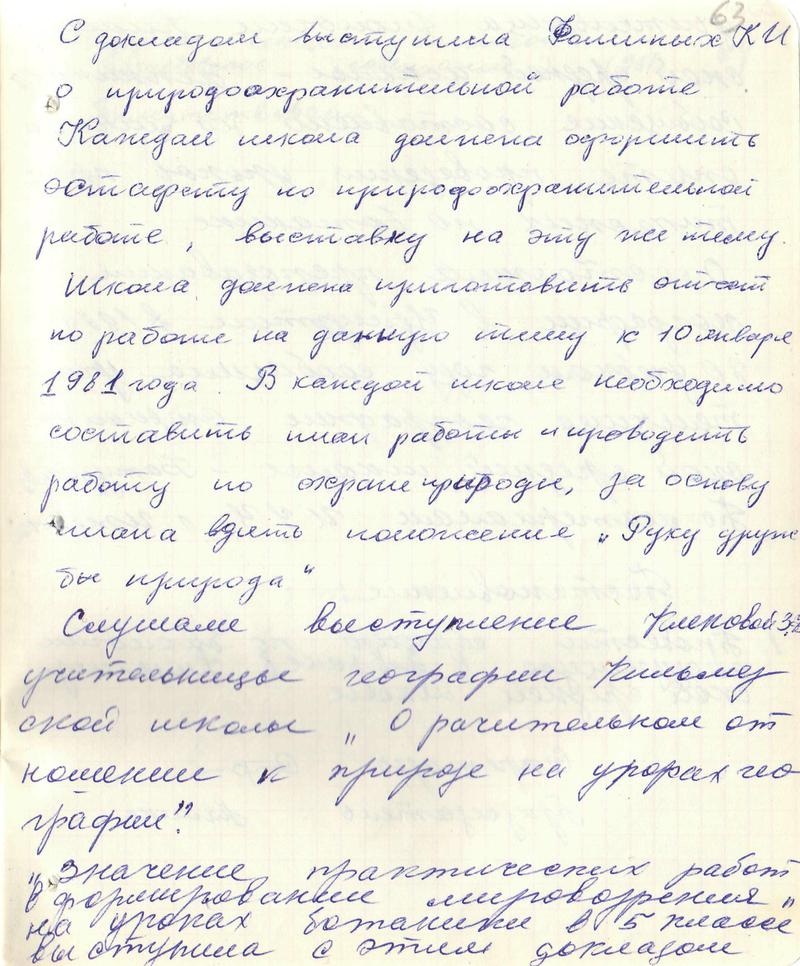 63
С докладом выступила Фоминых К И
о природоохранительной работе
Каждая школа должена оформить
эстафету по природоохранительной
работе, выставку на эту же тему.
Школа должена приготовить отчёт
по работе на данную тему к 10 января
1981 года. В каждой школе необходимо
составить план работы и проводить
работу по охране природы, за основу
плана вдять положение „Руку друж
бы природа"
Слушали выступление Клековой
учительницы географии Кильмез
ской школы „О рачительном от
ношении к природе на уроках гео
графии".
„Значение практических работ
в формировании мировозрения"
на уроках ботаники в 5 классе
выступила с этим докладом